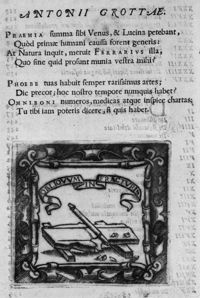 ANTONII GROTTAE.
PRAEMIA summa sibi Venus, & Lucina petebant,
Quòd primae humani causa forent generis:
At Natura inquit, meruit FERRARIUS illa,
Quo sine quid prosunt munia vestra mihi?
PHOEBE tuas habuit semper rarissimus artes;
Dic precor, hoc nostro tempore numquis habet?
OMNIBONI numeros, medicas atque inspice chartas;
Tu tibi iam poteris dicere, si quis habet.